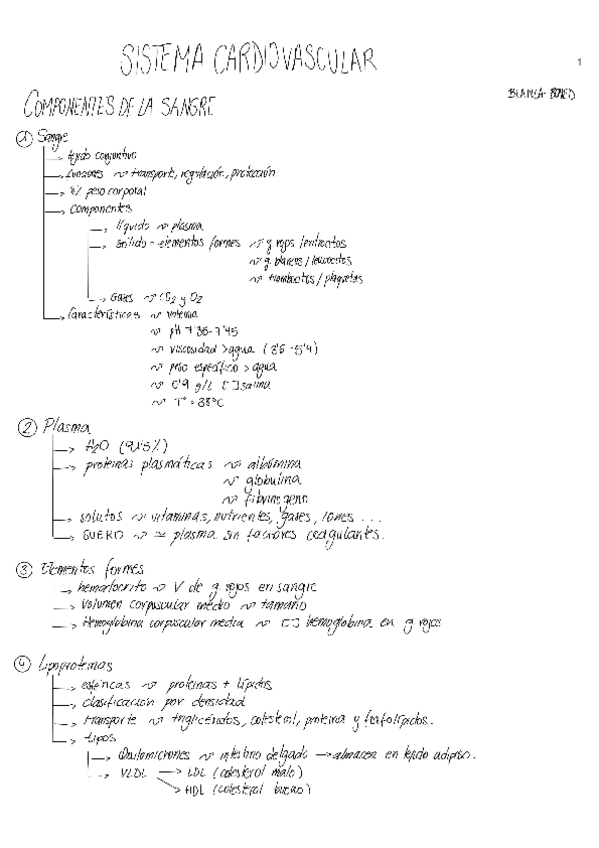 SISTEMA CARDIOVASCULAR
1
BLANCA BONED
COMPONENTES DE LA SANGRE
① Sangre
→ tejido conjuntivo
→ funciones ~> transporte, regulación, protección
→ 8% peso corporal
→ Componentes
→ líquido ~> plasma
→ sólido - elementos formes ~> g rojos / eritrocitos
~> g. blancos / leucocitos
~> trombocitos / plaquetas
→ Gases ~> CO2 y O2
→ Características ~> volemia
~> pH 7'35-7'45
~> viscosidad > agua (3'5 -5'4)
~> peso específico > agua
~> 0'9 g/L [ ] salina
~> Tº = 38ºC
② Plasma
→ H2O (91'5%)
→ proteínas plasmáticas ~> albúmina
~> globulina
~> fibrinógeno
→ solutos ~> vitaminas, nutrientes, gases, iones ...
→ SUERO ~> ≃ plasma sin factores coagulantes.
③ Elementos formes
→ hematocrito ~> V de g rojos en sangre
→ Volumen corpuscular medio ~> tamaño
→ Hemoglobina corpuscular media ~> [ ] hemoglobina en g rojos
④ Lipoproteínas
→ esféricas ~> proteínas + lípidos
→ clasificación por densidad
→ transporte ~> triglicéridos, colesterol, proteína y fosfolípidos.
→ tipos
→ Quilomicrones ~> intestino delgado → almacen en tejido adiposo.
→ VLDL → LDL (colesterol malo)
→ HDL (colesterol bueno)